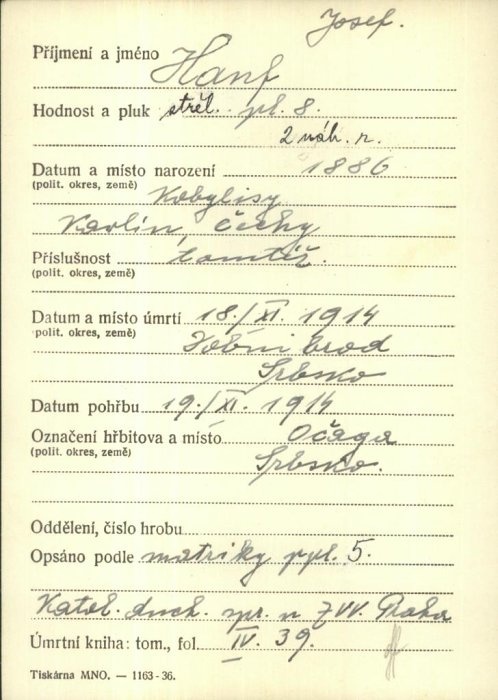 Josef.
Příjmení a jméno Hanf
Hodnost a pluk střel. pl. 8.
2 náh. r.
Datum a místo narození 1886
(polit. okres, země) Kobylisy
Karlín, Čechy
Příslušnost tamtéž.
(polit. okres, země)
Datum a místo úmrtí 18./XI. 1914
(polit. okres, země) brod
Srbsko
Datum pohřbu 19./XI. 1914
Označení hřbitova a místo Očaga
(polit. okres, země) Srbsko.
Oddělení, číslo hrobu
Opsáno podle matriky ppl. 5.
Katol. duch. spr. u ZVV. Praha
Úmrtní kniha: tom., fol. IV. 39.
Tiskárna MNO. — 1163-36.